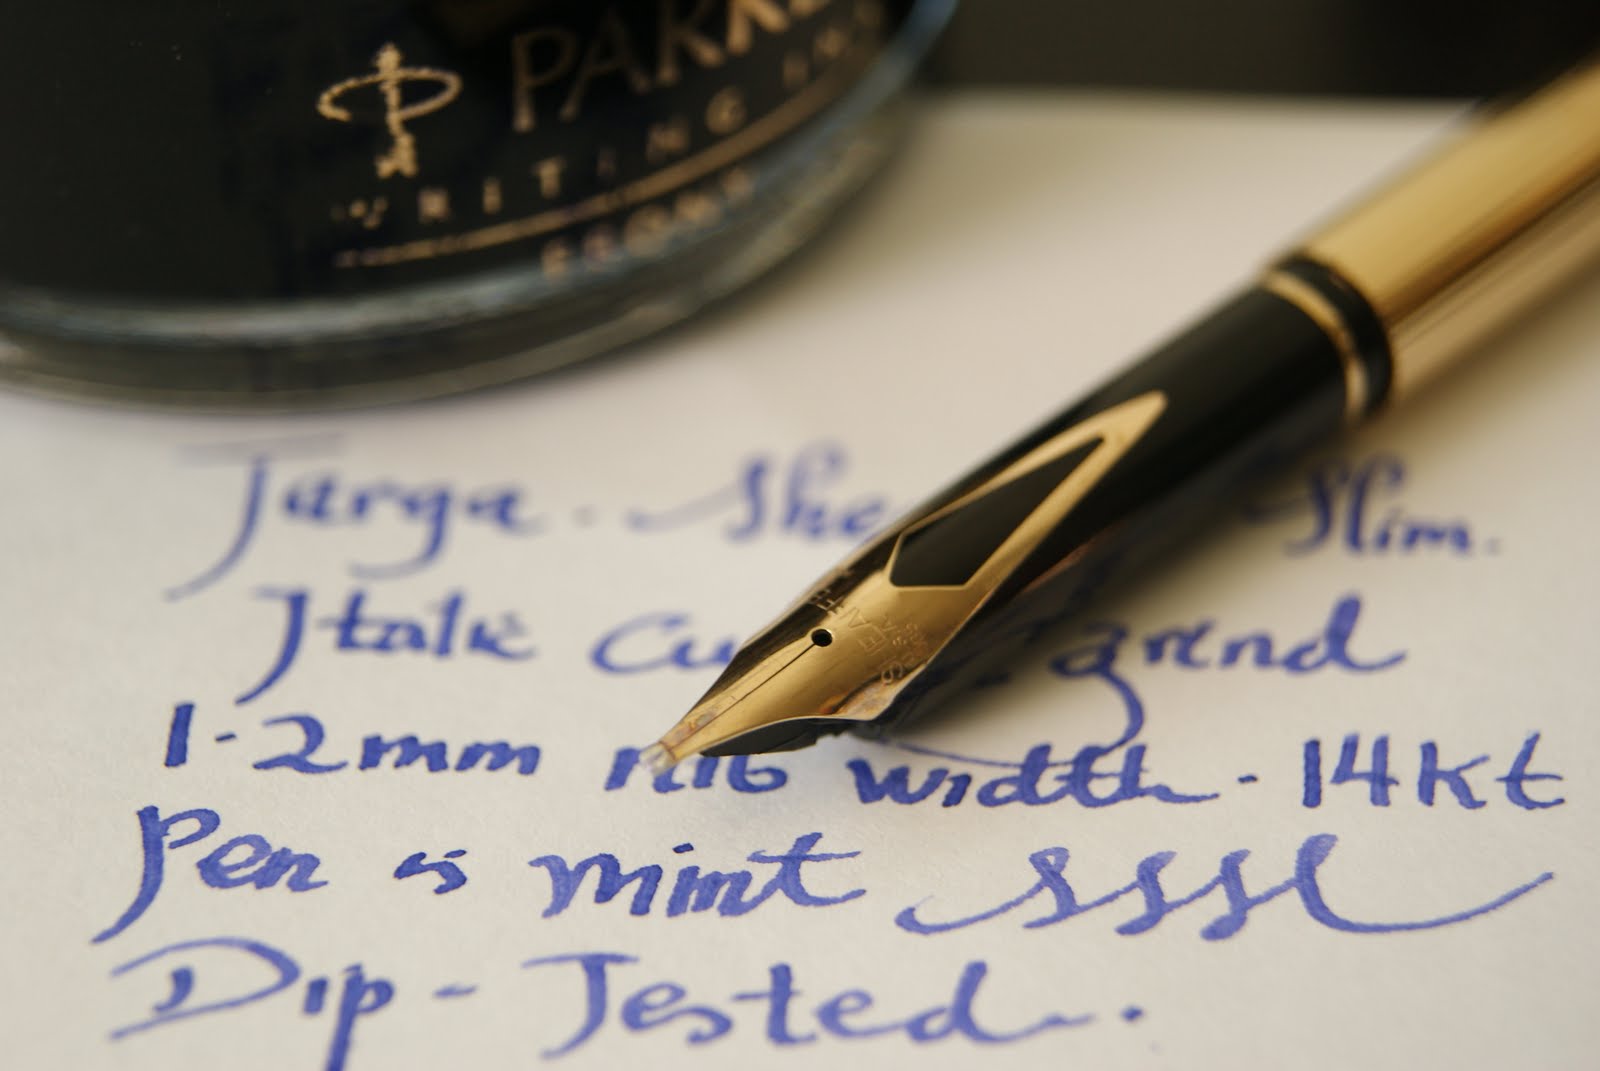 PARKE
WRITING INK
Targa - She Slim.
Italic Cu grind
1.2mm nib width - 14kt
Pen is mint sssl
Dip - Tested.